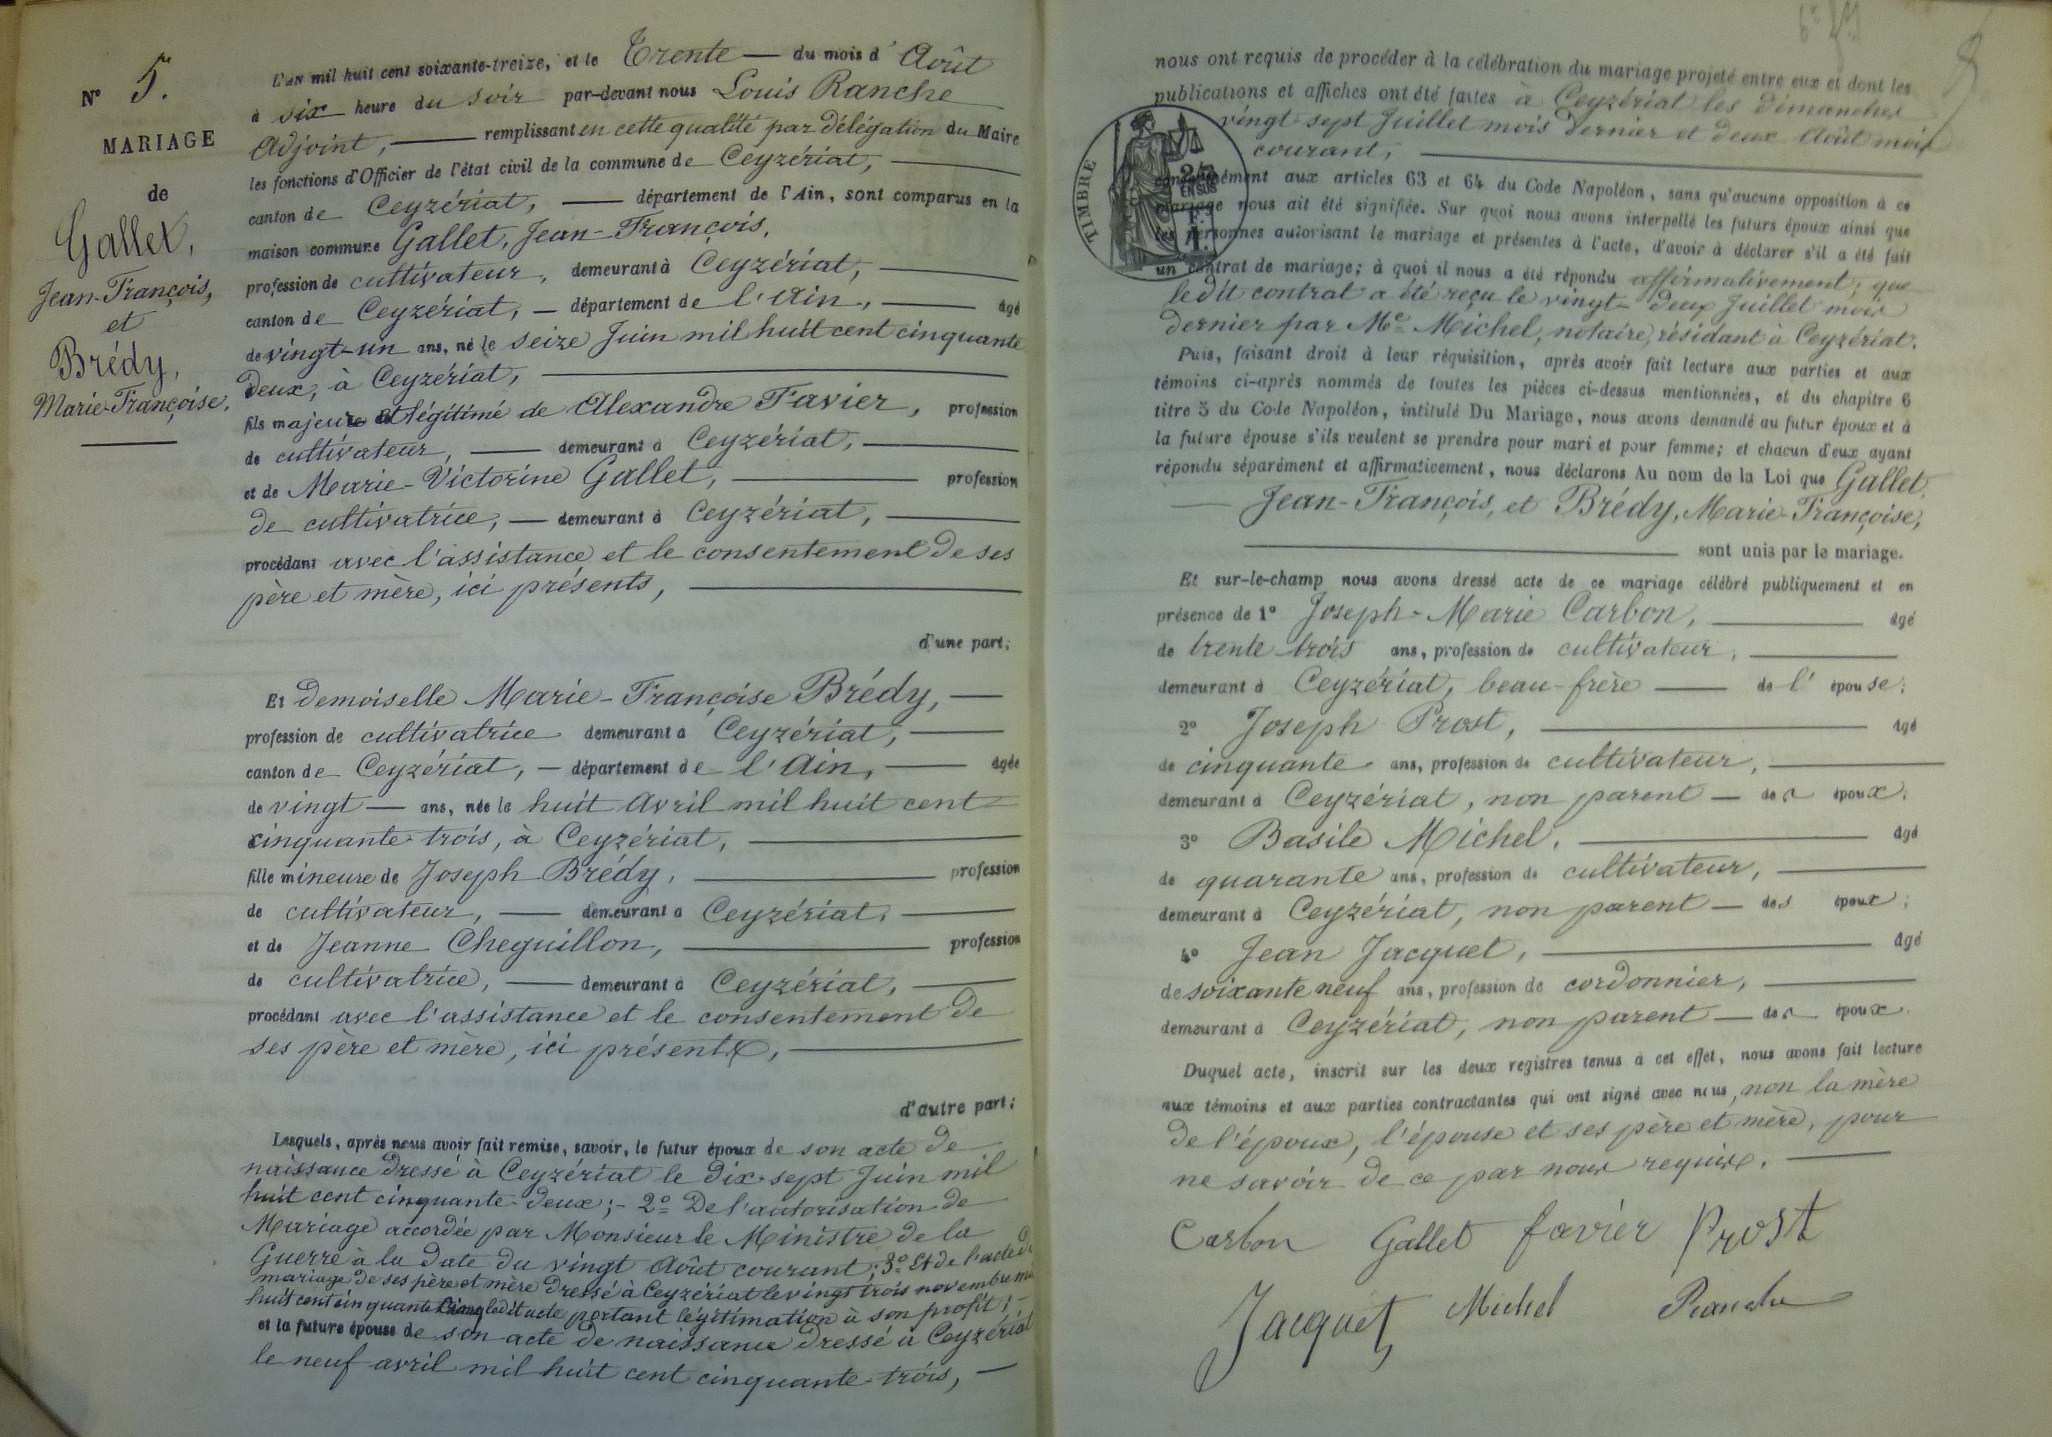 N° 5.
MARIAGE
de
Gallet,
Jean-François,
et
Brédy,
Marie-Françoise.
L'an mil huit cent soixante-treize, et le Trente — du mois d'Août
à six heure du soir par-devant nous Louis Ranche
Adjoint, — remplissant en cette qualité par délégation du Maire
les fonctions d'Officier de l'état civil de la commune de Ceyzériat, —
canton de Ceyzériat, — département de l'Ain, sont comparus en la
maison commune Gallet, Jean-François,
profession de cultivateur, demeurant à Ceyzériat, —
canton de Ceyzériat, — département de l'Ain, — âgé
de vingt-un ans, né le seize Juin mil huit cent cinquante
deux, à Ceyzériat, —
fils majeur et légitimé de Alexandre Favier, profession
de cultivateur, — demeurant à Ceyzériat, —
et de Marie-Victorine Gallet, — profession
de cultivatrice, — demeurant à Ceyzériat, —
procédant avec l'assistance et le consentement de ses
père et mère, ici présents, —
d'une part;
Et demoiselle Marie-Françoise Brédy, —
profession de cultivatrice demeurant à Ceyzériat, —
canton de Ceyzériat, — département de l'Ain, — âgée
de vingt — ans, née le huit Avril mil huit cent
cinquante trois, à Ceyzériat, —
fille mineure de Joseph Brédy, — profession
de cultivateur, — demeurant à Ceyzériat, —
et de Jeanne Cheguillon, — profession
de cultivatrice, — demeurant à Ceyzériat, —
procédant avec l'assistance et le consentement de
ses père et mère, ici présents, —
d'autre part;
Lesquels, après nous avoir fait remise, savoir, le futur époux de son acte de
naissance dressé à Ceyzériat le dix-sept Juin mil
huit cent cinquante-deux; - 2° De l'autorisation de
Mariage accordée par Monsieur le Ministre de la
Guerre à la date du vingt Août courant; 3° Et de l'acte de
mariage de ses père et mère dressé à Ceyzériat le vingt trois novembre mil
huit cent cinquante cinq ledit acte portant légitimation à son profit; -
et la future épouse de son acte de naissance dressé à Ceyzériat
le neuf avril mil huit cent cinquante-trois, —
nous ont requis de procéder à la célébration du mariage projeté entre eux et dont les
publications et affiches ont été faites à Ceyzériat les dimanches
vingt sept Juillet mois dernier et deux Août mois
courant, —
TIMBRE
conformément aux articles 63 et 64 du Code Napoléon, sans qu'aucune opposition à ce
mariage nous ait été signifiée. Sur quoi nous avons interpellé les futurs époux ainsi que
les personnes autorisant le mariage et présentes à l'acte, d'avoir à déclarer s'il a été fait
un contrat de mariage; à quoi il nous a été répondu affirmativement; que
ledit contrat a été reçu le vingt-deux Juillet mois
dernier par Me Michel, notaire, résidant à Ceyzériat.
Puis, faisant droit à leur réquisition, après avoir fait lecture aux parties et aux
témoins ci-après nommés de toutes les pièces ci-dessus mentionnées, et du chapitre 6
titre 5 du Code Napoléon, intitulé Du Mariage, nous avons demandé au futur époux et à
la future épouse s'ils veulent se prendre pour mari et pour femme; et chacun d'eux ayant
répondu séparément et affirmativement, nous déclarons Au nom de la Loi que Gallet,
— Jean-François, et Brédy, Marie-Françoise,
— sont unis par le mariage.
Et sur-le-champ nous avons dressé acte de ce mariage célébré publiquement et en
présence de 1° Joseph-Marie Carbon, — âgé
de trente trois ans, profession de cultivateur, —
demeurant à Ceyzériat, beau-frère — de l'épouse;
2° Joseph Prost, — âgé
de cinquante ans, profession de cultivateur, —
demeurant à Ceyzériat, non parent — des époux;
3° Basile Michel, — âgé
de quarante ans, profession de cultivateur, —
demeurant à Ceyzériat, non parent — des époux;
4° Jean Jacquet, — âgé
de soixante neuf ans, profession de cordonnier, —
demeurant à Ceyzériat, non parent — des époux.
Duquel acte, inscrit sur les deux registres tenus à cet effet, nous avons fait lecture
aux témoins et aux parties contractantes qui ont signé avec nous, non la mère
de l'époux, l'épouse et ses père et mère, pour
ne savoir de ce par nous requis. —
Carbon Gallet favier Prost
Jacquet Michel Ranche